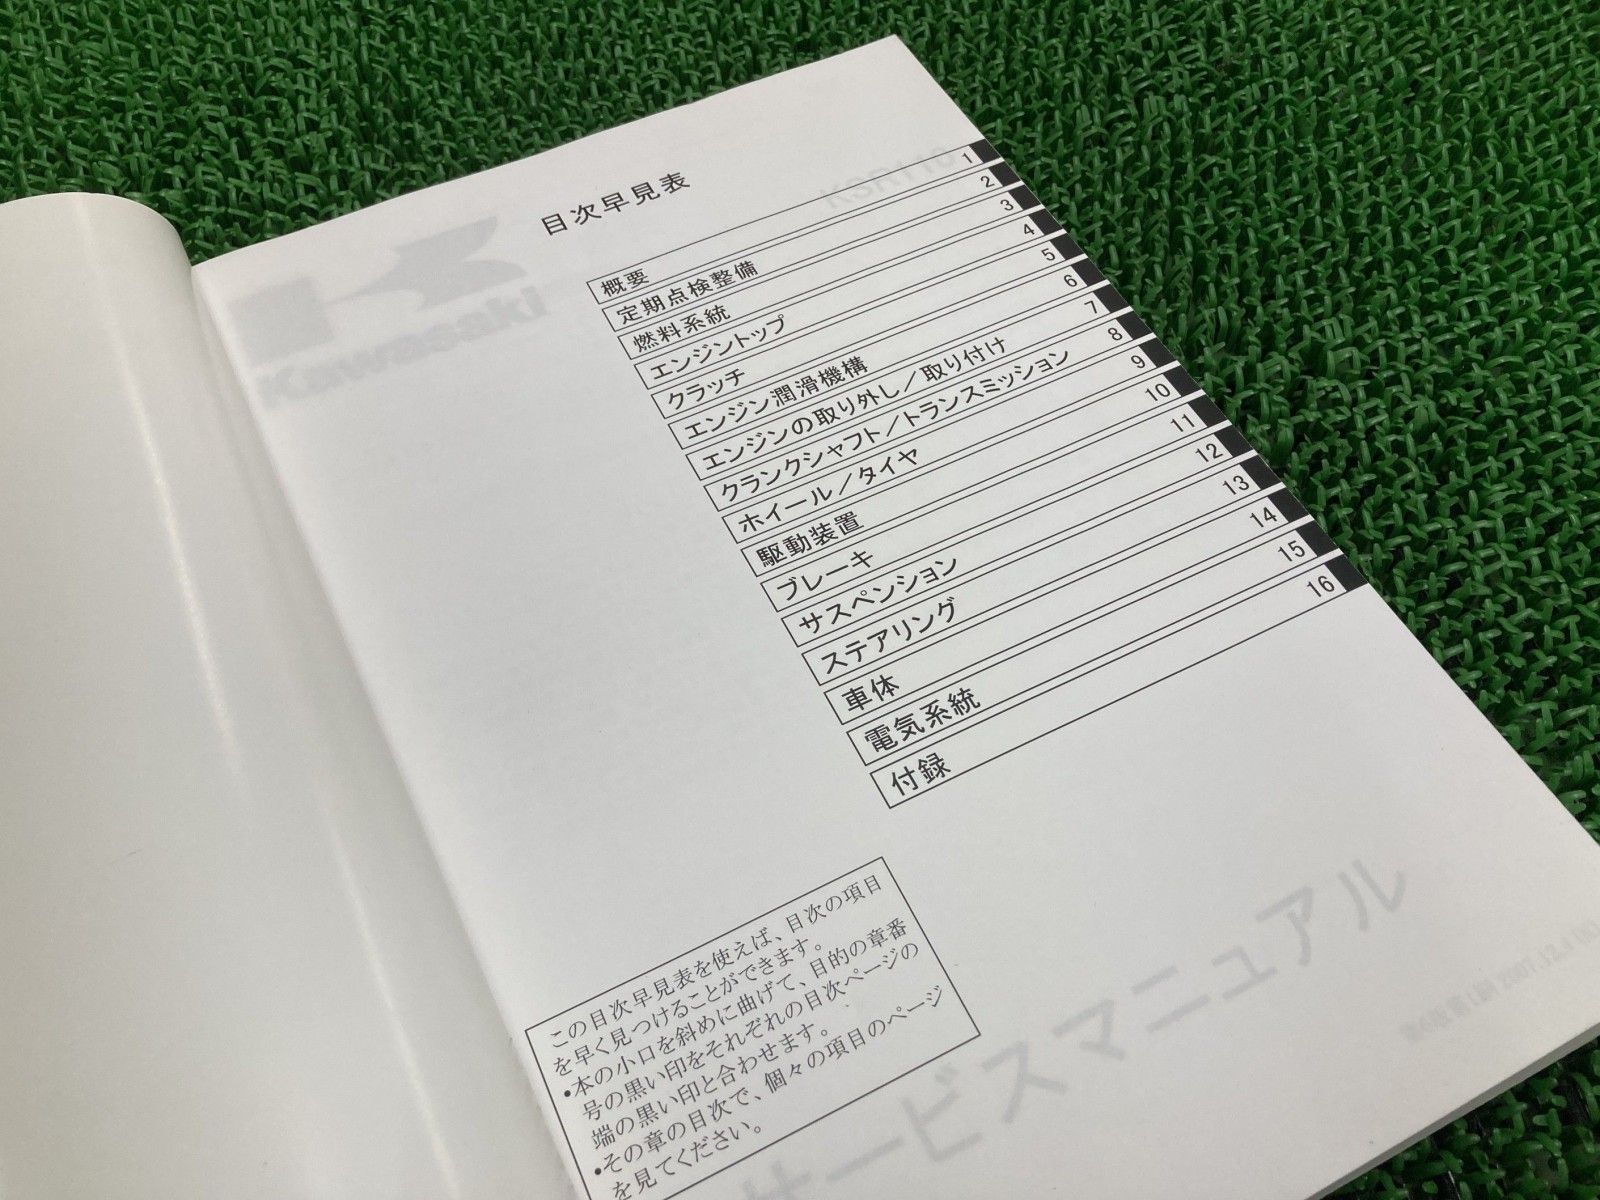 目次早見表
概要 1
定期点検整備 2
燃料系統 3
エンジントップ 4
クラッチ 5
エンジン潤滑機構 6
エンジンの取り外し／取り付け 7
クランクシャフト／トランスミッション 8
ホイール／タイヤ 9
駆動装置 10
ブレーキ 11
サスペンション 12
ステアリング 13
車体 14
電気系統 15
付録 16
この目次早見表を使えば、目次の項目
を早く見つけることができます。
•本の小口を斜めに曲げて、目的の章番
号の黒い印をそれぞれの目次ページの
端の黒い印と合わせます。
•その章の目次で、個々の項目のページ
を見てください。
Kawasaki
KSR110
サービスマニュアル